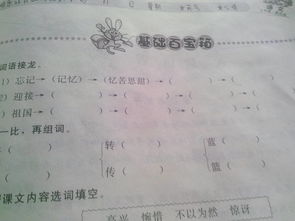 基础百宝箱
词语接龙。
1）忘记→（记忆）→（忆苦思甜）→（ ）
2）迎接→（ ）→（ ）→（ ）
）祖国→（ ）→（ ）→（ ）
一比，再组词。
（ ） 转（ ） 蓝（ ）
（ ） 传（ ） 篮（ ）
课文内容选词填空。
高兴 惋惜 不以为然 惊讶